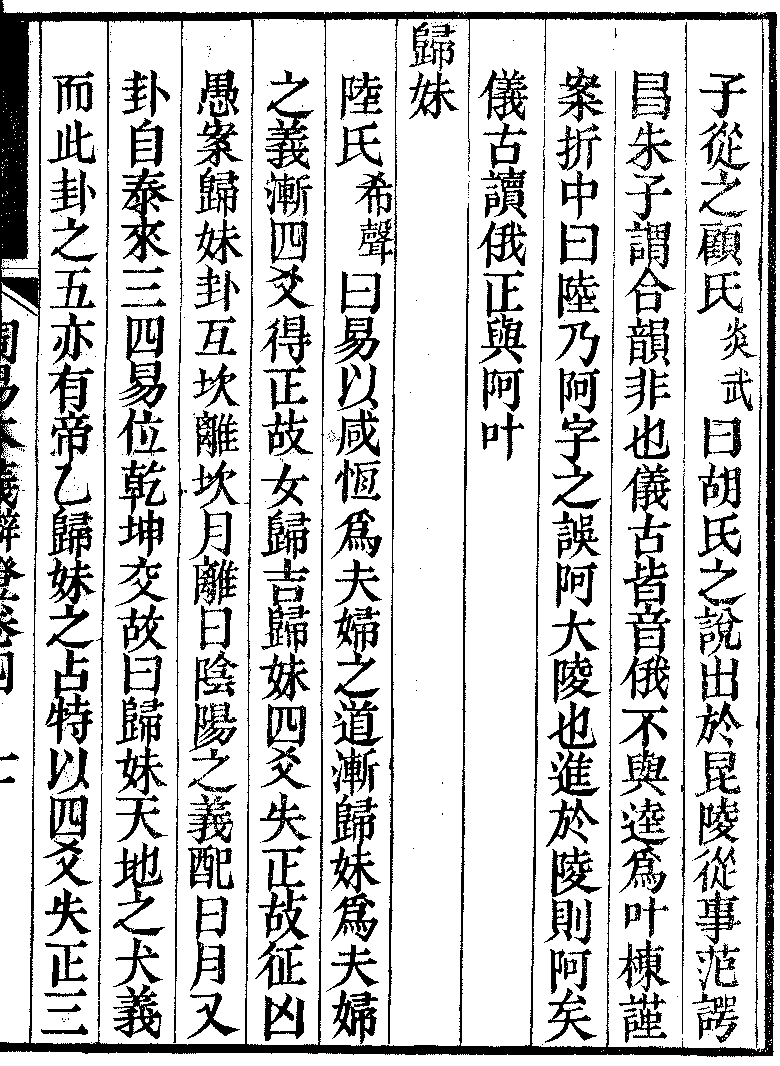 子從之顧氏炎武曰胡氏之說出於昆陵從事范諤
昌朱子謂合韻非也儀古皆音俄不與逵爲叶棟謹
案折中曰陸乃阿字之誤阿大陵也進於陵則阿矣
儀古讀俄正與阿叶
歸妹
陸氏希聲曰易以咸恆爲夫婦之道漸歸妹爲夫婦
之義漸四爻得正故女歸吉歸妹四爻失正故征凶
愚案歸妹卦互坎離坎月離日陰陽之義配日月又
卦自泰來三四易位乾坤交故曰歸妹天地之犬義
而此卦之五亦有帝乙歸妹之占特以四爻失正三
周易本義辯證卷四